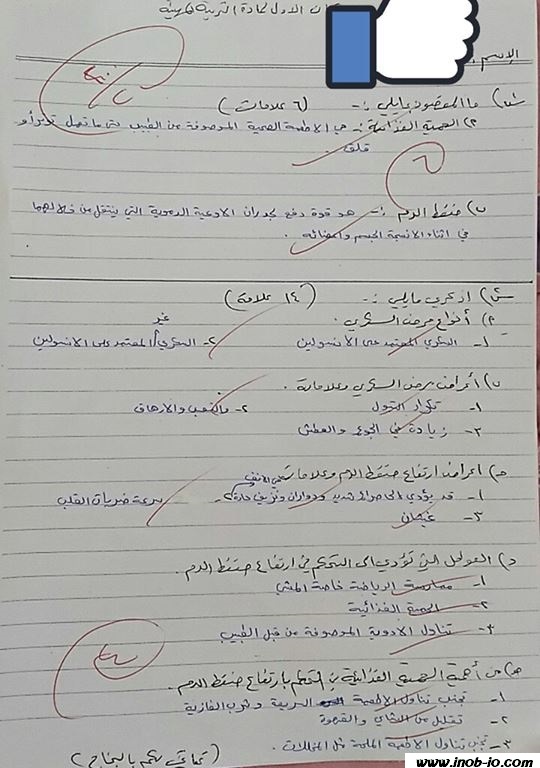 الاول لمادة التربية المهنية
الإسم
س١) ما المقصود بما يلي :- (٦ علامات)
٢) الحمية الغذائية :- هي الاطعمة الصحية الموصوفة من الطبيب حتى ما تعمل توتر أو
قلق
٦
ب) ضغط الدم :- هو قوة دفع لجدران الاوعية الدموية التي ينتقل من خلالهما
في اثناء الانسجة الجسم واعضائه .
س٢) اذكري ما يلي :- (١٤ علامة)
٢) أنواع مرض السكري .
١- السكري المعتمد على الانسولين ٢- السكري غير المعتمد على الانسولين
ب) أعراض مرض السكري وعلاماته .
١- تكرار التبول ٢- التعب والارهاق
٣- زيادة في الجوع والعطش
ج) اعراض ارتفاع ضغط الدم وعلاماته
١- قد يؤدي الى صداع شديد ودوران ونزيف من الانف ٢- سرعة ضربات القلب
٣- غثيان
د) العوامل التي تؤدي الى التحكم في ارتفاع ضغط الدم .
١- ممارسة الرياضة خاصة المشي
٢- الحمية الغذائية
٣- تناول الادوية الموصوفة من قبل الطبيب
هـ) من أهمية الحمية الغذائية التحكم بارتفاع ضغط الدم .
١- تجنب تناول الاطعمة السريعة وشرب الغازية
٢- تقليل من الشاي والقهوة
٣- تجنب تناول الاطعمة المملحة مثل المخللات .
(تمنياتي لكم بالنجاح)
www.inob-io.com